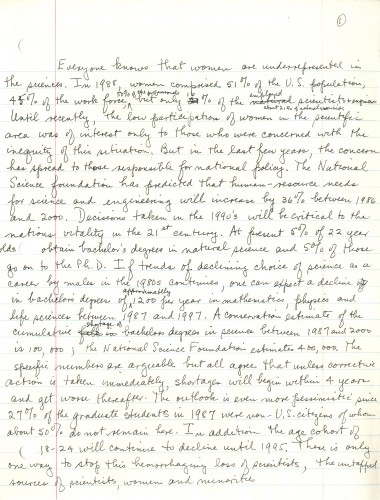 ①
Everyone knows that women are underrepresented in
the sciences. In 1988, women comprised 51% of the U.S. population,
45% of the work force, but only 16% of the employed natural scientists
Until recently, the low participation of women in the scientific
area was of interest only to those who were concerned with the
inequity of this situation. But in the last few years, the concern
has spread to those responsible for national policy. The National
Science foundation has predicted that human-resource needs
for science and engineering will increase by 36% between 1986
and 2000. Decisions taken in the 1990's will be critical to the
nations vitality in the 21st century. At present 5% of 22 year
olds obtain bachelor's degrees in natural science and 5% of those
go on to the Ph.D. If trends of declining choice of science as a
career by males in the 1980s continues, one can expect a decline
in bachelor degrees of approximately 1200 per year in mathematics, physics and
life sciences between 1987 and 1997. A conservation estimate of the
cumulative shortage of bachelors degrees in science between 1987 and 2000
is 100,000; the National Science Foundation estimates 400,000. The
specific numbers are arguable but all agree that unless corrective
action is taken immediately, shortages will begin within 4 years
and get worse thereafter. The outlook is even more pessimistic since
27% of the graduate students in 1987 were non-U.S. citizens of whom
about 50% do not remain here. In addition the age cohort of
18-24 will continue to decline until 1995. There is only
one way to stop this hemorrhaging loss of scientists, the untapped
sources of scientists, women and minorities